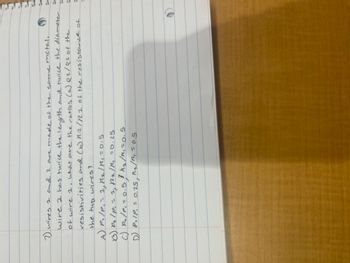 7) Wires 1 and 2 are made of the same metal.
Wire 2 has twice the length and twice the diameter
of wire 1. What are the ratios (a) ρ2/ρ1 of the
resistivities and (b) R2/R1 of the resistance of
the two wires?
A) ρ2/ρ1 = 1, R2/R1 = 0.5
B) ρ2/ρ1 = 1, R2/R1 = 0.25
C) ρ2/ρ1 = 0.5, R2/R1 = 0.5
D) ρ2/ρ1 = 0.25, R2/R1 = 0.5